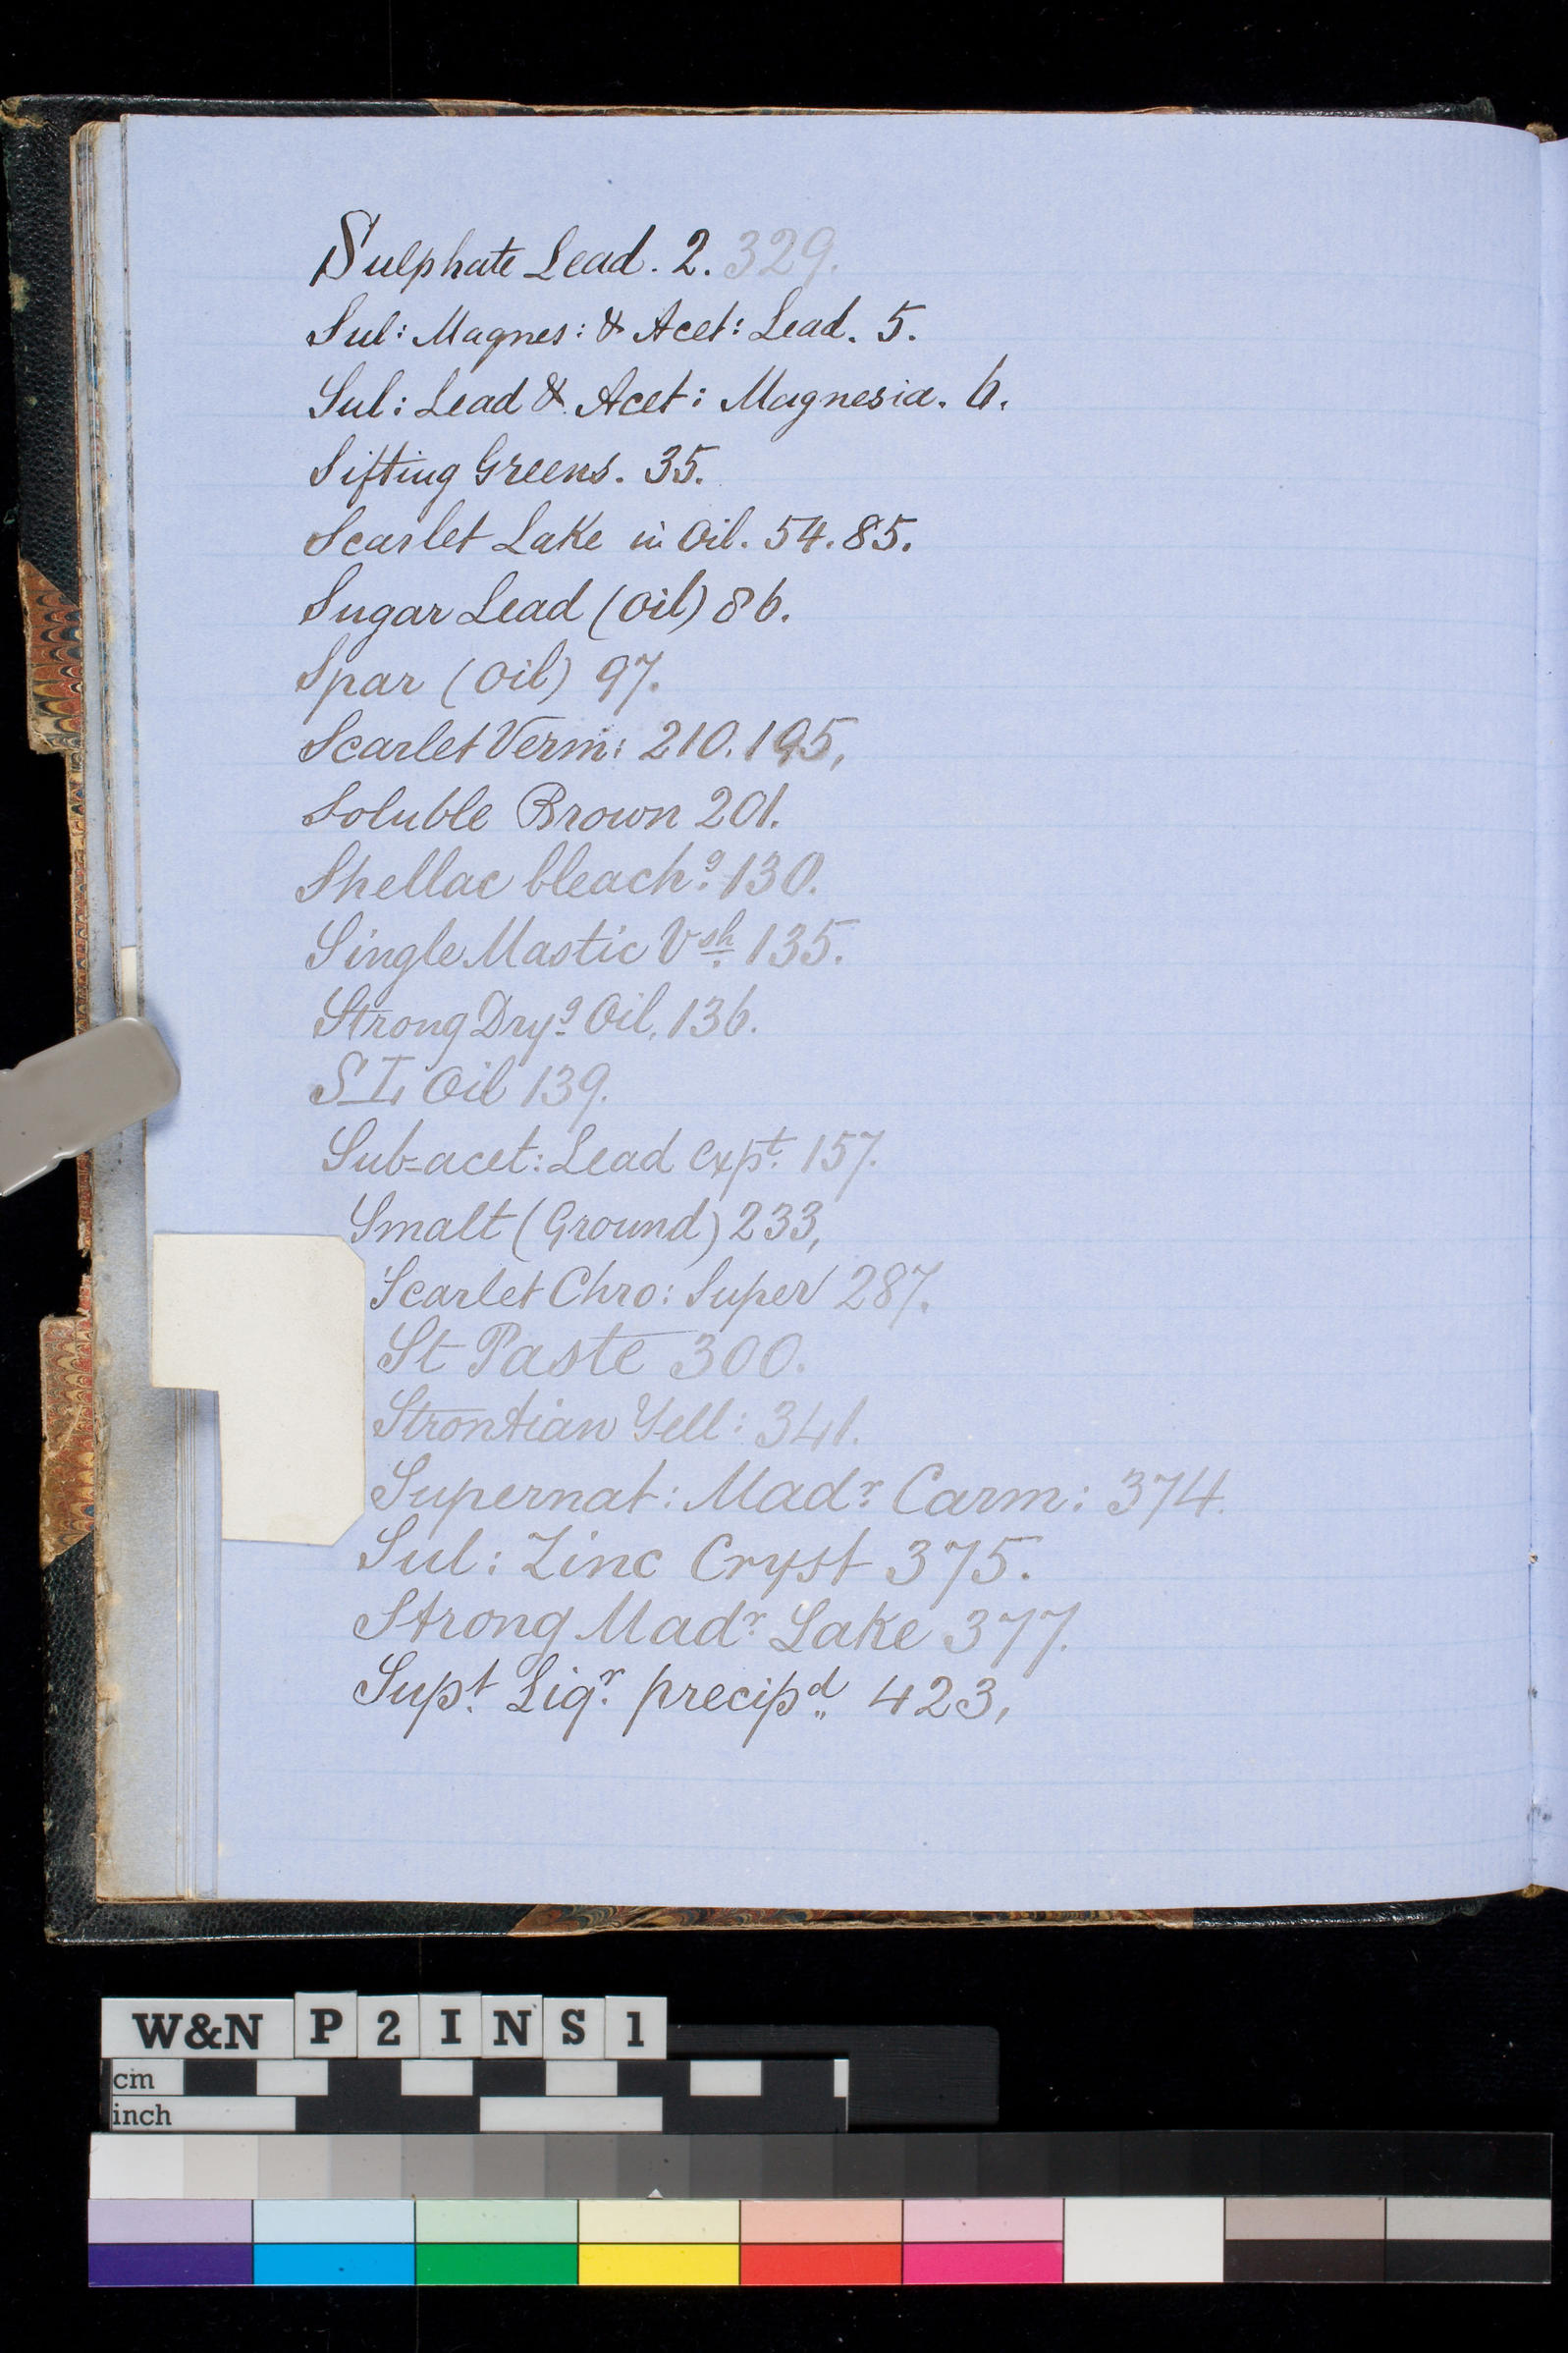 Sulphate Lead. 2. 329.
Sul: Magnes: & Acet: Lead. 5.
Sul: Lead & Acet: Magnesia. 6.
Sifting Greens. 35.
Scarlet Lake in Oil. 54. 85.
Sugar Lead (Oil) 86.
Spar (Oil) 97.
Scarlet Verm: 210. 195,
Soluble Brown 201.
Shellac bleachg. 130.
Single Mastic Vsh. 135.
Strong Dryg. Oil, 136.
S I, Oil 139.
Sub-acet: Lead expt. 157.
Smalt (Ground) 233,
Scarlet Chro: Super 287.
St Paste 300.
Strontian Yell: 341.
Supernat: Madr. Carm: 374.
Sul: Zinc Cryst 375.
Strong Madr. Lake 377.
Supt. Liqr. precipd. 423,
W&N P 2 I N S 1
cm
inch